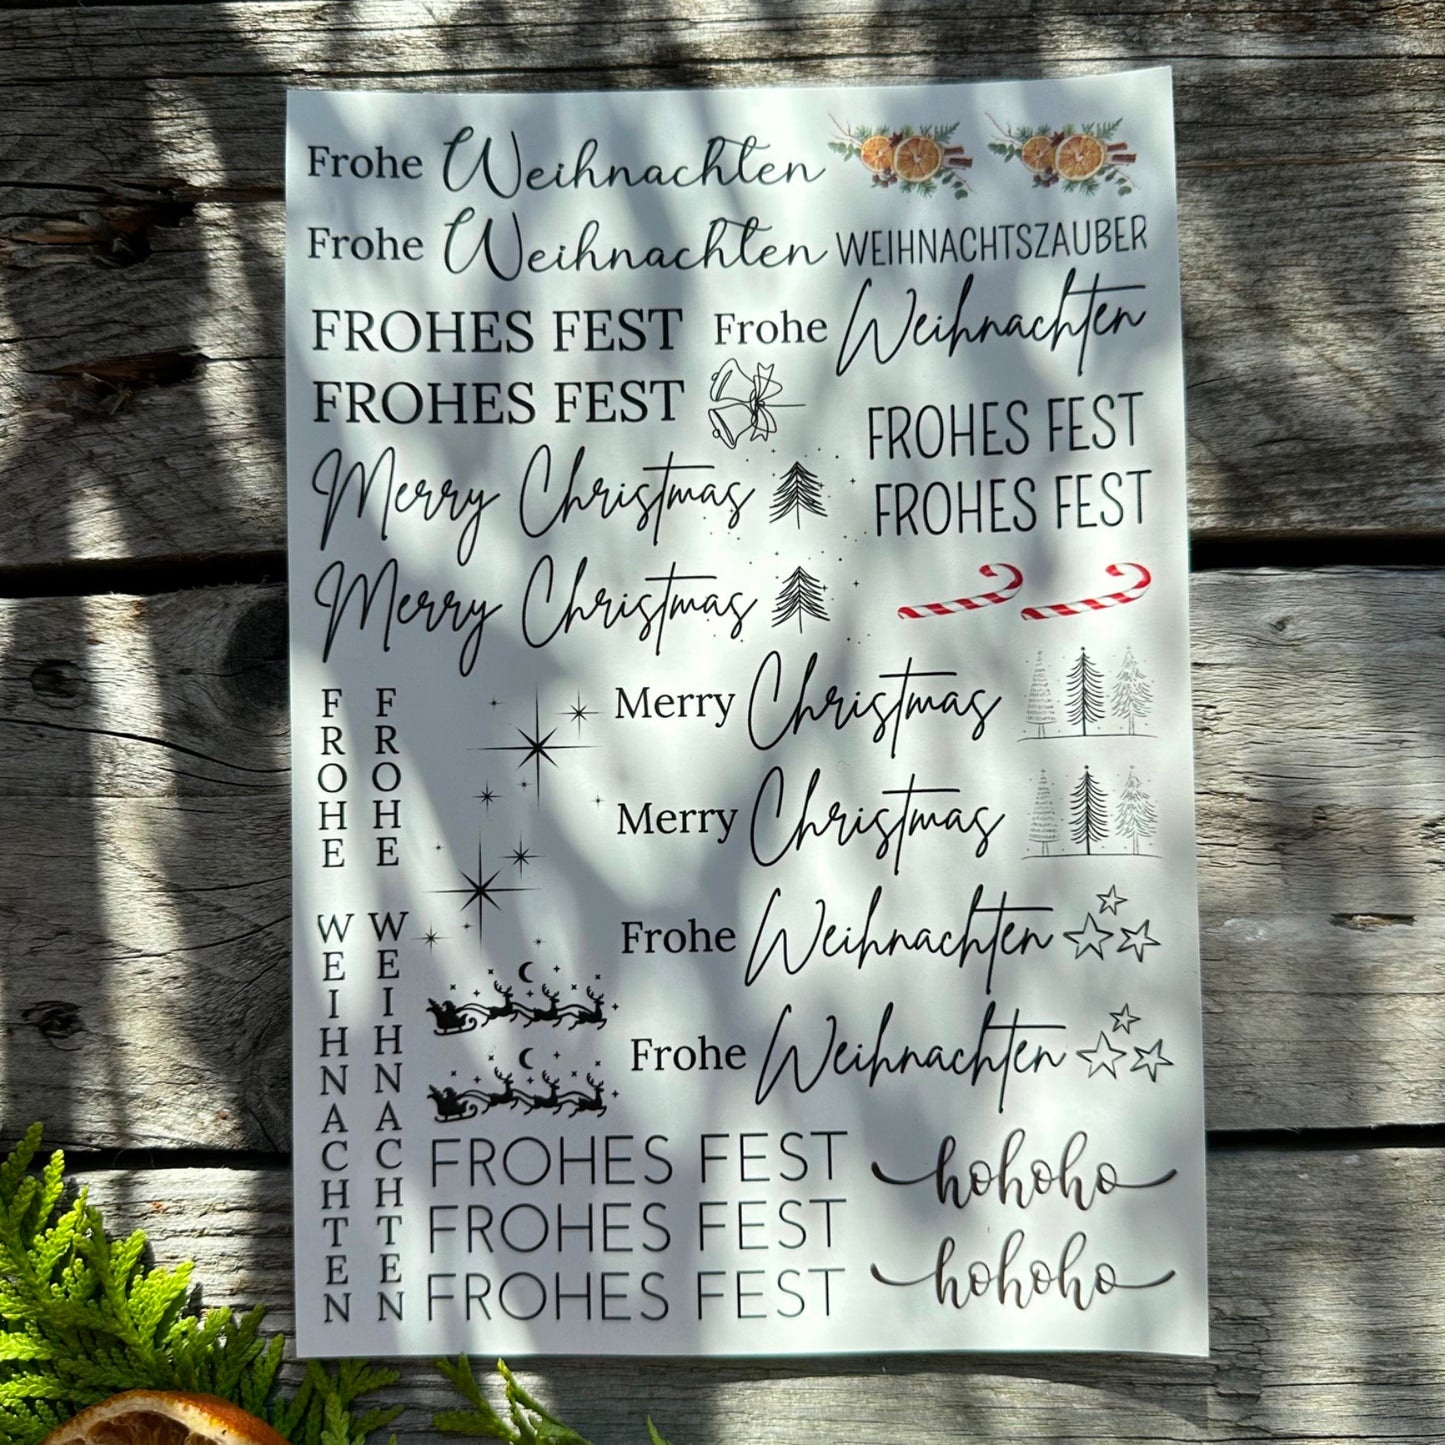 Frohe Weihnachten
Frohe Weihnachten
WEIHNACHTSZAUBER
FROHES FEST
Frohe Weihnachten
FROHES FEST
FROHES FEST
FROHES FEST
Merry Christmas
Merry Christmas
Merry Christmas
Merry Christmas
FROHE WEIHNACHTEN
FROHE WEIHNACHTEN
Frohe Weihnachten
Frohe Weihnachten
FROHES FEST
FROHES FEST
FROHES FEST
hohoho
hohoho